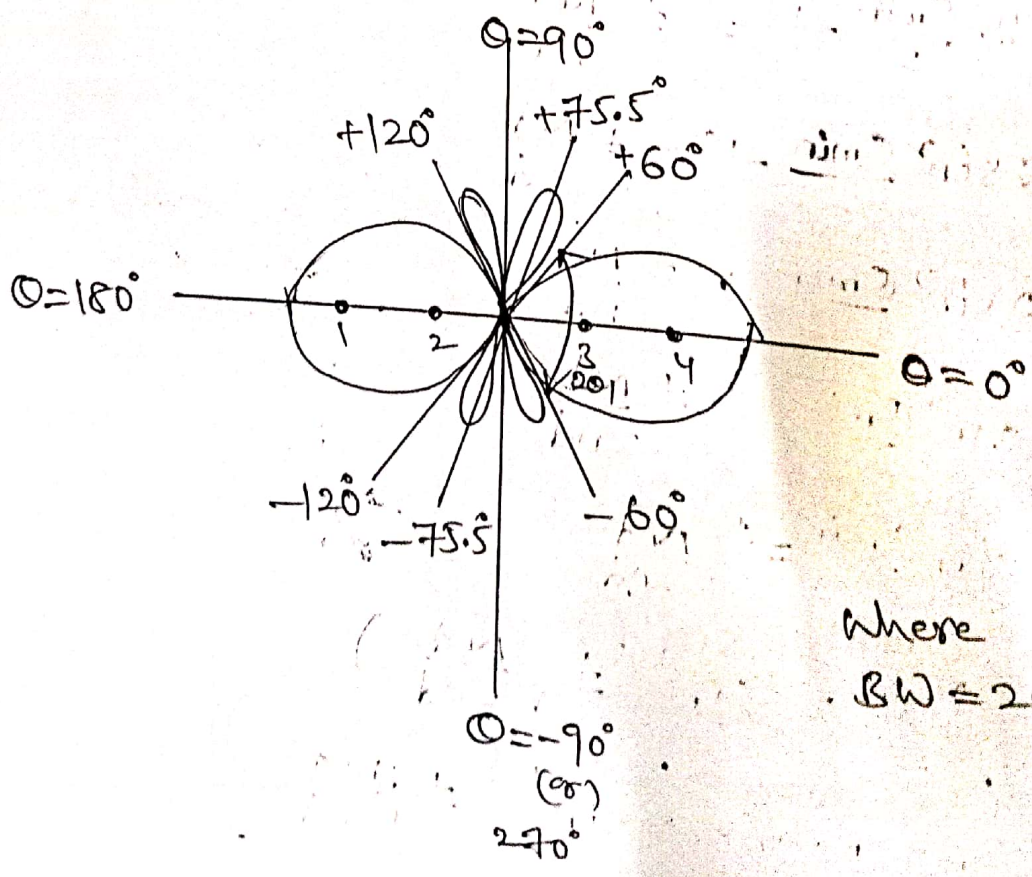 θ=90°
+120°
+75.5°
+60°
θ=180°
1
2
3
4
θ=0°
-120°
-75.5
-60°
Where
BW=2
θ=-90°
(or)
270°